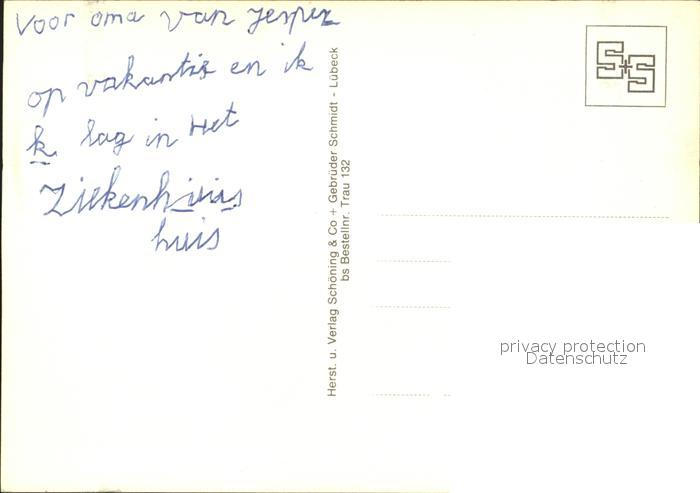 Voor oma van Jesper
op vakantie en ik
k lag in Het
Ziekenhuis
huis
Herst. u. Verlag Schöning & Co + Gebrüder Schmidt - Lübeck
bs Bestellnr. Trau 132
S+S
privacy protection
Datenschutz